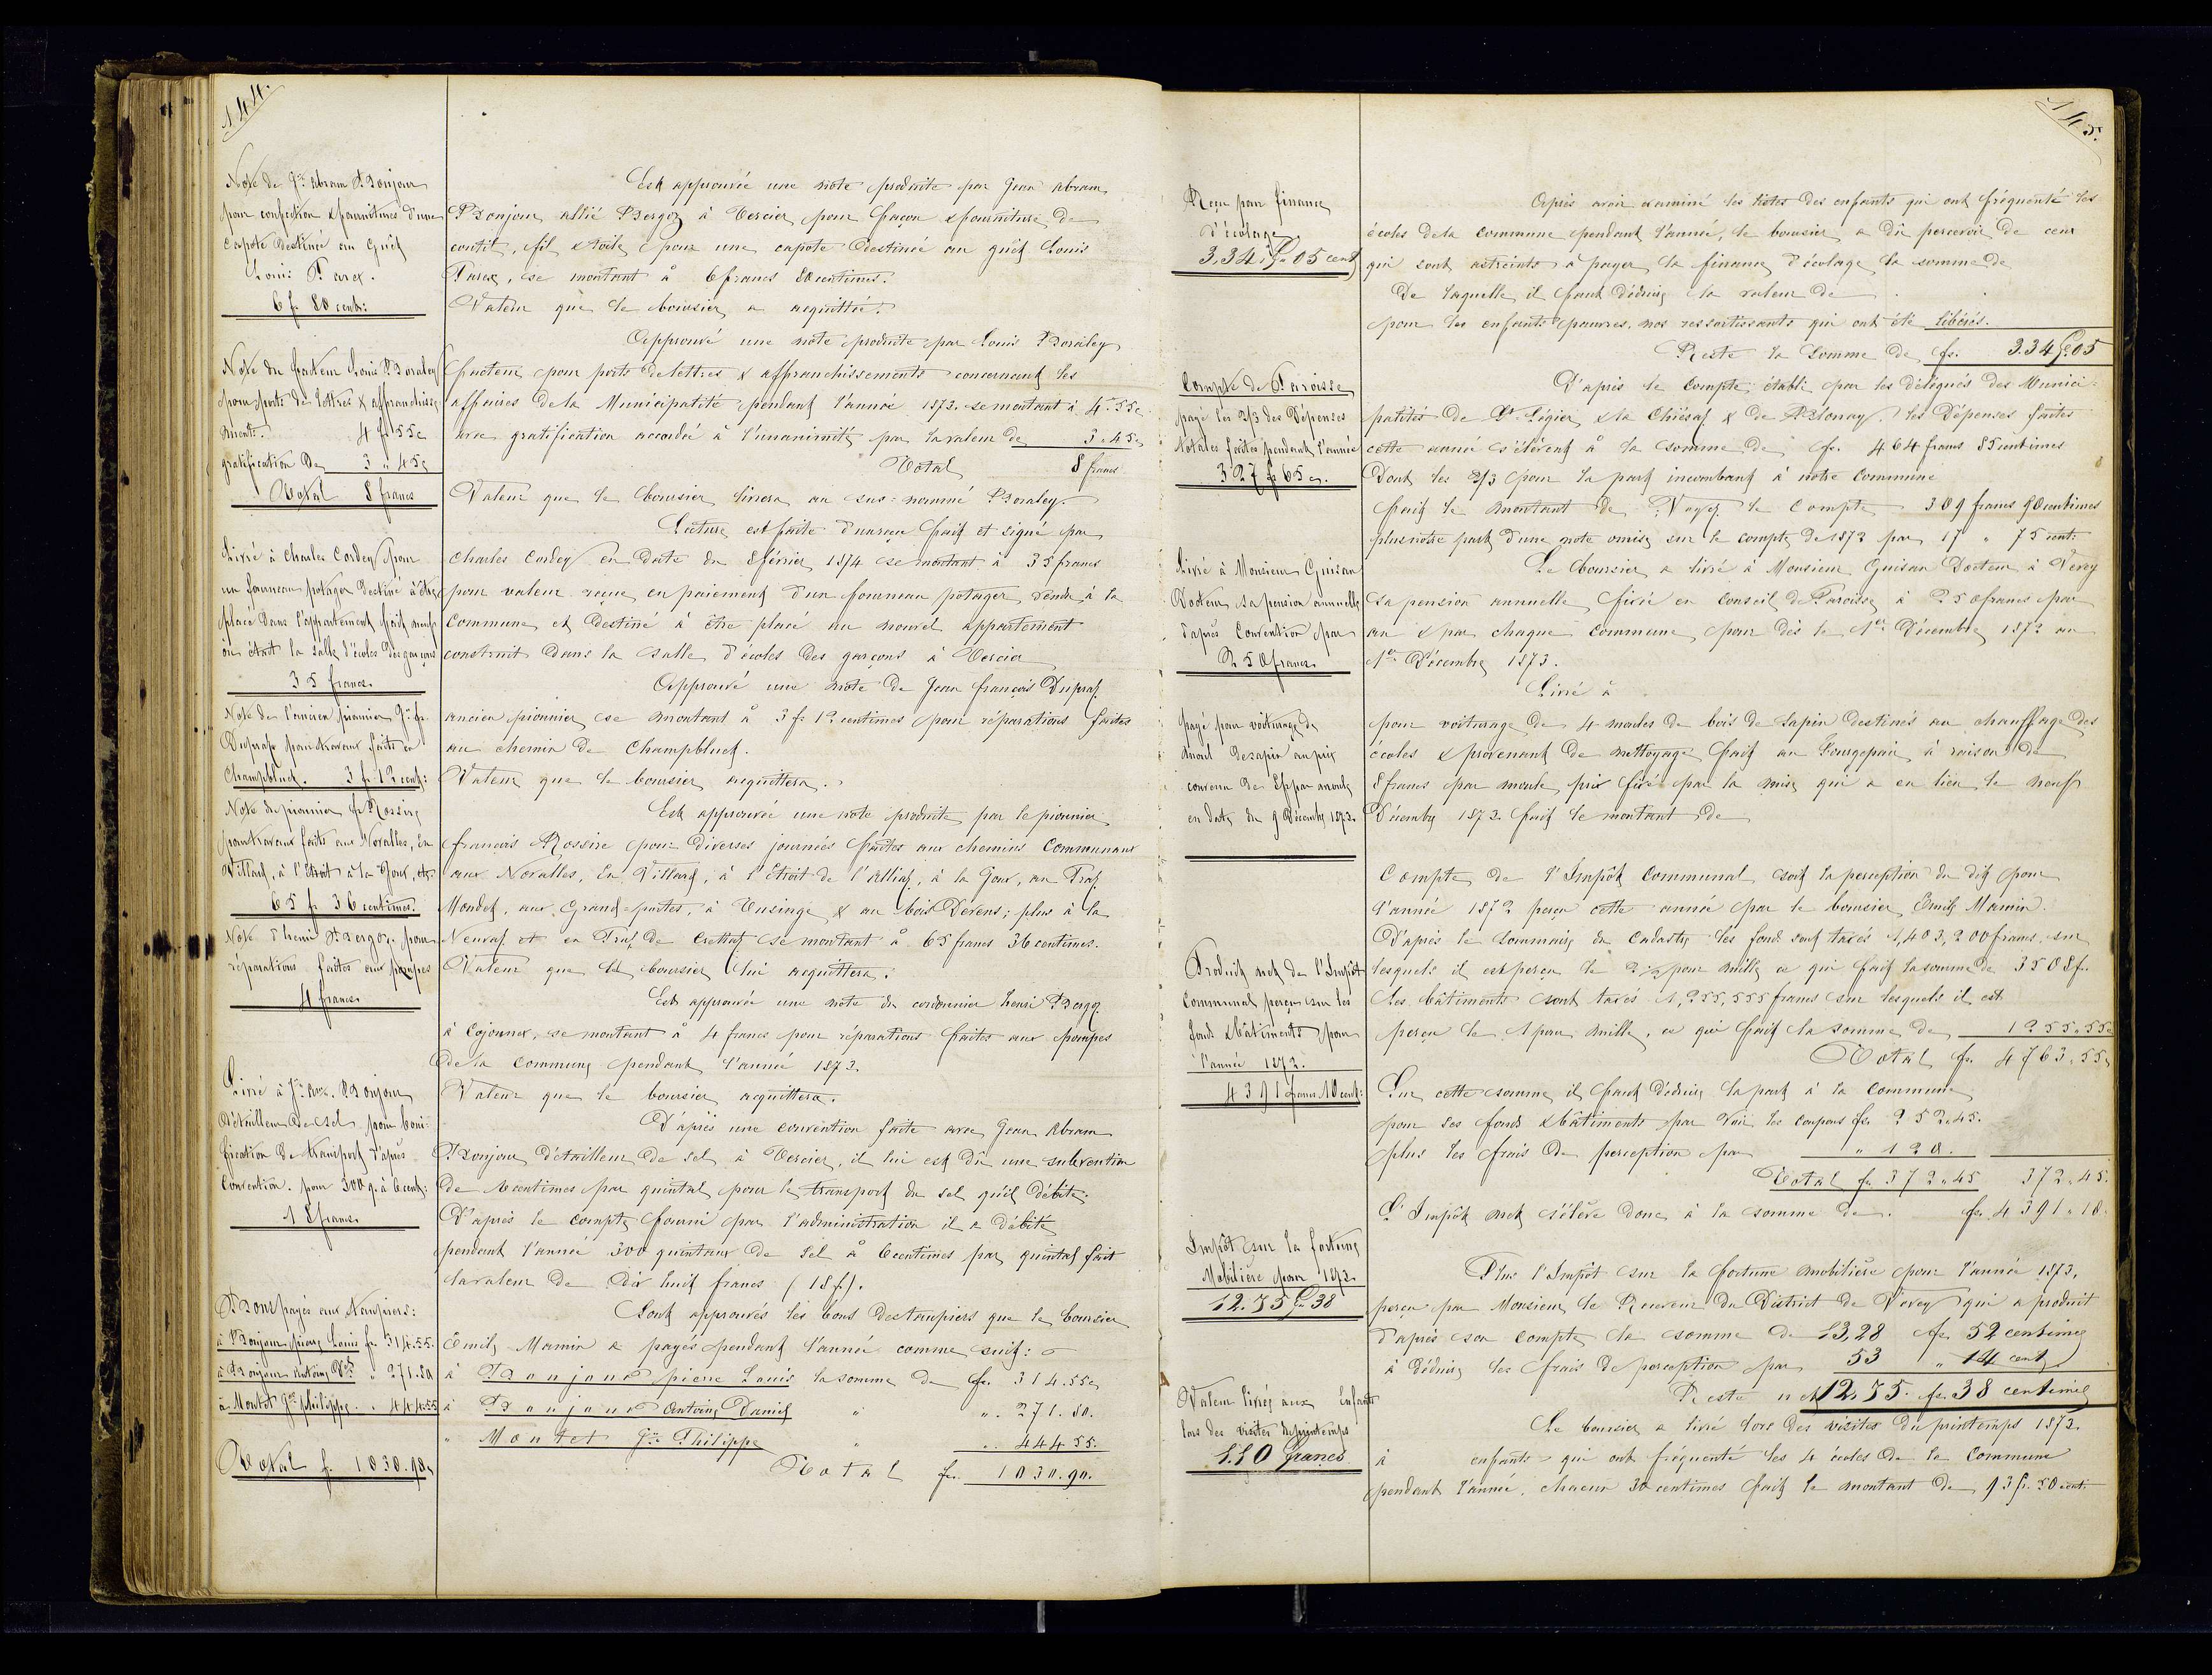 144.
Note de Jn Abram Bonjour
pour confection & fournitures d'une
capote destinée au guêt
Louis Parex.
6 f. 80 cent:
Note du facteur Louis Boraley
pour ports de lettres & affranchisse
ment: 4 f. 55 c
gratification de 3 " 45 c
Total 8 francs
Livré à Charles Cordey pour
un fourneau potager destiné à être
placé dans l'appartement fait neuf
où était la salle d'écoles des garçons
35 francs.
Note de l'ancien pionnier Jn fs
Dupraz pour travaux faits en
Champbluet. 3 f. 12 cent:
Note du pionnier fs Rossire
pour travaux faits aux Novalles, En
Villard, à l'Etroit à la Goux, etc.
65 f. 36 centimes.
Note d'henri Bergoz pour
réparations faites aux pompes
4 francs
Livré à Jn Abr. Bonjour
détailleur de sel pour boni-
fication de transport d'après
Convention. pour 300 q. à 6 cent:
18 francs
Bons payés aux Taupiers:
à Bonjour pierre Louis fr. 314.55.
à Bonjour Antoine Dl " 271.80
à Montet Jn philippe " 444.55
Total f. 1030.90
Est approuvée une note produite par Jean Abram
Bonjour allié Bergoz à Vercier pour façon & fourniture de
coutil, fil & toile pour une capote destinée au guêt Louis
Parex, se montant à 6 francs 80 centimes.
Valeur que le boursier a acquittée.
Approuvé une note produite par Louis Boraley
facteur pour ports de lettres & affranchissements concernant les
affaires de la Municipalité pendant l'année 1873. se montant à 4 " 55 c
avec gratification accordée à l'unanimité par la valeur de 3 " 45 c
Total 8 francs
Valeur que le boursier livrera au sus-nommé Boraley.
Lecture est faite d'un reçu fait et signé par
Charles Cordey en date du 8 février 1874 se montant à 35 francs
pour valeur reçue en paiement d'un fourneau potager vendu à la
Commune et destiné à être placé au nouvel appartement
construit dans la salle d'écoles des garçons à Vercier
Approuvé une note de Jean françois Dupraz
ancien pionnier se montant à 3 f. 12 centimes pour réparations faites
au chemin de Champbluet.
Valeur que le boursier acquittera.
Est approuvée une note produite par le pionnier
françois Rossire pour diverses journées faites aux chemins Communaux
aux Novalles, En Villard, à l'Etroit de l'Alliaz, à la Goux, au Praz
Mondet, aux Grands-portes, à Tusinge & au bois Devens; plus à la
Neuvaz et en Praz de Crettaz se montant à 65 francs 36 centimes.
Valeur que le boursier lui acquittera.
Est approuvée une note du cordonnier henri Bergoz
à Cojonnex, se montant à 4 francs pour réparations faites aux pompes
de la Commune pendant l'année 1873.
Valeur que le boursier acquittera.
D'après une convention faite avec Jean Abram
Bonjour détailleur de sel à Vercier, il lui est dû une subvention
de 6 centimes par quintal pour le transport du sel qu'il débite.
D'après le compte fourni par l'administration il a débité
pendant l'année 300 quintaux de sel à 6 centimes par quintal fait
la valeur de dix huit francs (18 f.).
Sont approuvés les bons des taupiers que le boursier
Emile Mamin a payés pendant l'année comme suit:
à Bonjour pierre Louis la somme de fr. 314.55 c
à Bonjour Antoine Daniel " ". 271.80.
" Montet Jn Philippe " ". 444.55.
Total fr. 1030.90.
145.
Reçu pour finance
d'écolage
334. fr. 05 cent
Compte de Paroisse
payé les 2/3 des Dépenses
Notales faites pendant l'année
327 f. 65 c.
Livré à Monsieur Guisan
Docteur sa pension annuelle
d'après Convention par
250 francs
payé pour voiturage de
moul de sapin au prix
convenu de 8 f. par moule
en date du 9 Décembre 1873.
Produit net de l'Impôt
Communal perçu sur les
fonds & bâtiments pour
l'année 1873.
4391 francs 10 cent:
Impôt sur la fortune
Mobilière pour 1873.
1275 fr. 38
Valeur livrée aux Enfants
lors des visites du printemps
110 francs
Après avoir examiné les listes des enfants qui ont fréquenté les
écoles de la Commune pendant l'année, le boursier a dû percevoir de ceux
qui sont astreints à payer la finance d'écolage la somme de
De laquelle il faut déduire la valeur de
pour les enfants pauvres, nos ressortissants qui ont été libérés.
Reste la Somme de fr. 334 fr. 05
D'après le Compte établi par les délégués des Munici-
palités de St Légier & la Chiésaz & de Blonay, les Dépenses faites
cette année s'élèvent à la somme de fr. 464 francs 85 centimes
Dont les 2/3 pour la part incombant à notre Commune
fait le montant de Voyez le Compte 309 francs 90 centimes
plus notre part d'une note omise sur le compte de 1872 par 17 " 75 cent:
Le boursier a livré à Monsieur Guisan Docteur à Vevey
sa pension annuelle fixée en Conseil de Paroisse à 250 francs par
an & par chaque Commune, pour dès le 1er Décembre 1872 au
1er Décembre 1873.
Livré à
pour voiturage de 4 moules de bois de sapin destinés au chauffage des
écoles & provenant de nettoyage fait au à raison de
8 francs par moule prix fixé par la mise qui a eu lieu le neuf
Décembre 1873. fait le montant de
Compte de l'Impôt Communal soit la perception du dit pour
l'année 1873 perçu cette année par le boursier Emile Mamin.
D'après le Sommaire du Cadastre les fonds sont taxés 1,403,200 francs, sur
lesquels il est perçu le 2 1/2 pour mille ce qui fait la somme de 3508 fr.
Les bâtiments sont taxés 1,255,555 francs sur lesquels il est
perçu le 1 pour mille, ce qui fait la somme de 1255.55 c
Total fr. 4763.55 c
Sur cette somme il faut déduire la part à la Commune
pour ses fonds & bâtiments par Voir les coupons fr. 252.45.
plus les frais de perception par " 120.
Total fr. 372.45 372.45.
L'Impôt net s'élève donc à la somme de. fr. 4391.10.
Plus l'Impôt sur la fortune mobilière pour l'année 1873,
perçu par Monsieur le Receveur du District de Vevey qui a produit
d'après son Compte la somme de 13,28 fr. 52 centimes
à déduire les frais de perception par 53 " 14 cent
Reste net 12,75. fr. 38 centimes
Le boursier a livré lors des visites du printemps 1873.
à enfants qui ont fréquenté les 4 écoles de la Commune
pendant l'année, chacun 30 centimes fait le montant de 93 fr. 30 cent: